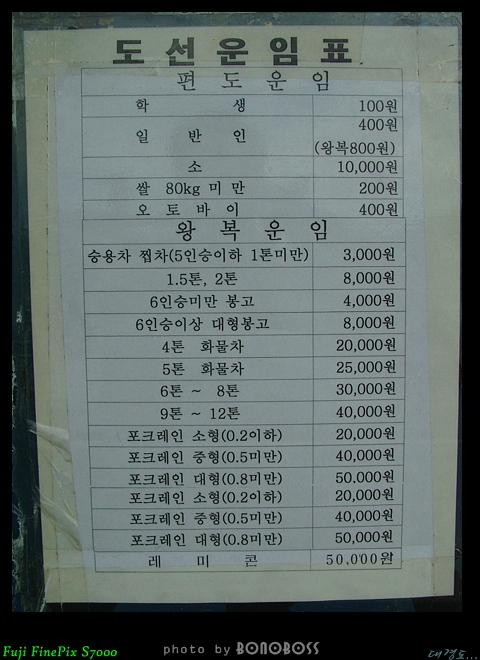 도선운임표
편도운임
학 생 100원
일 반 인 400원
(왕복800원)
소 10,000원
쌀 80kg 미만 200원
오토바이 400원
왕복운임
승용차 찝차(5인승이하 1톤미만) 3,000원
1.5톤, 2톤 8,000원
6인승미만 봉고 4,000원
6인승이상 대형봉고 8,000원
4톤 화물차 20,000원
5톤 화물차 25,000원
6톤 ~ 8톤 30,000원
9톤 ~ 12톤 40,000원
포크레인 소형(0.2이하) 20,000원
포크레인 중형(0.5미만) 40,000원
포크레인 대형(0.8미만) 50.000원
포크레인 소형(0.2이하) 20,000원
포크레인 중형(0.5미만) 40,000원
포크레인 대형(0.8미만) 50,000원
레 미 콘 50,000원
Fuji FinePix S7000
photo by BONOBOSS
대경도...